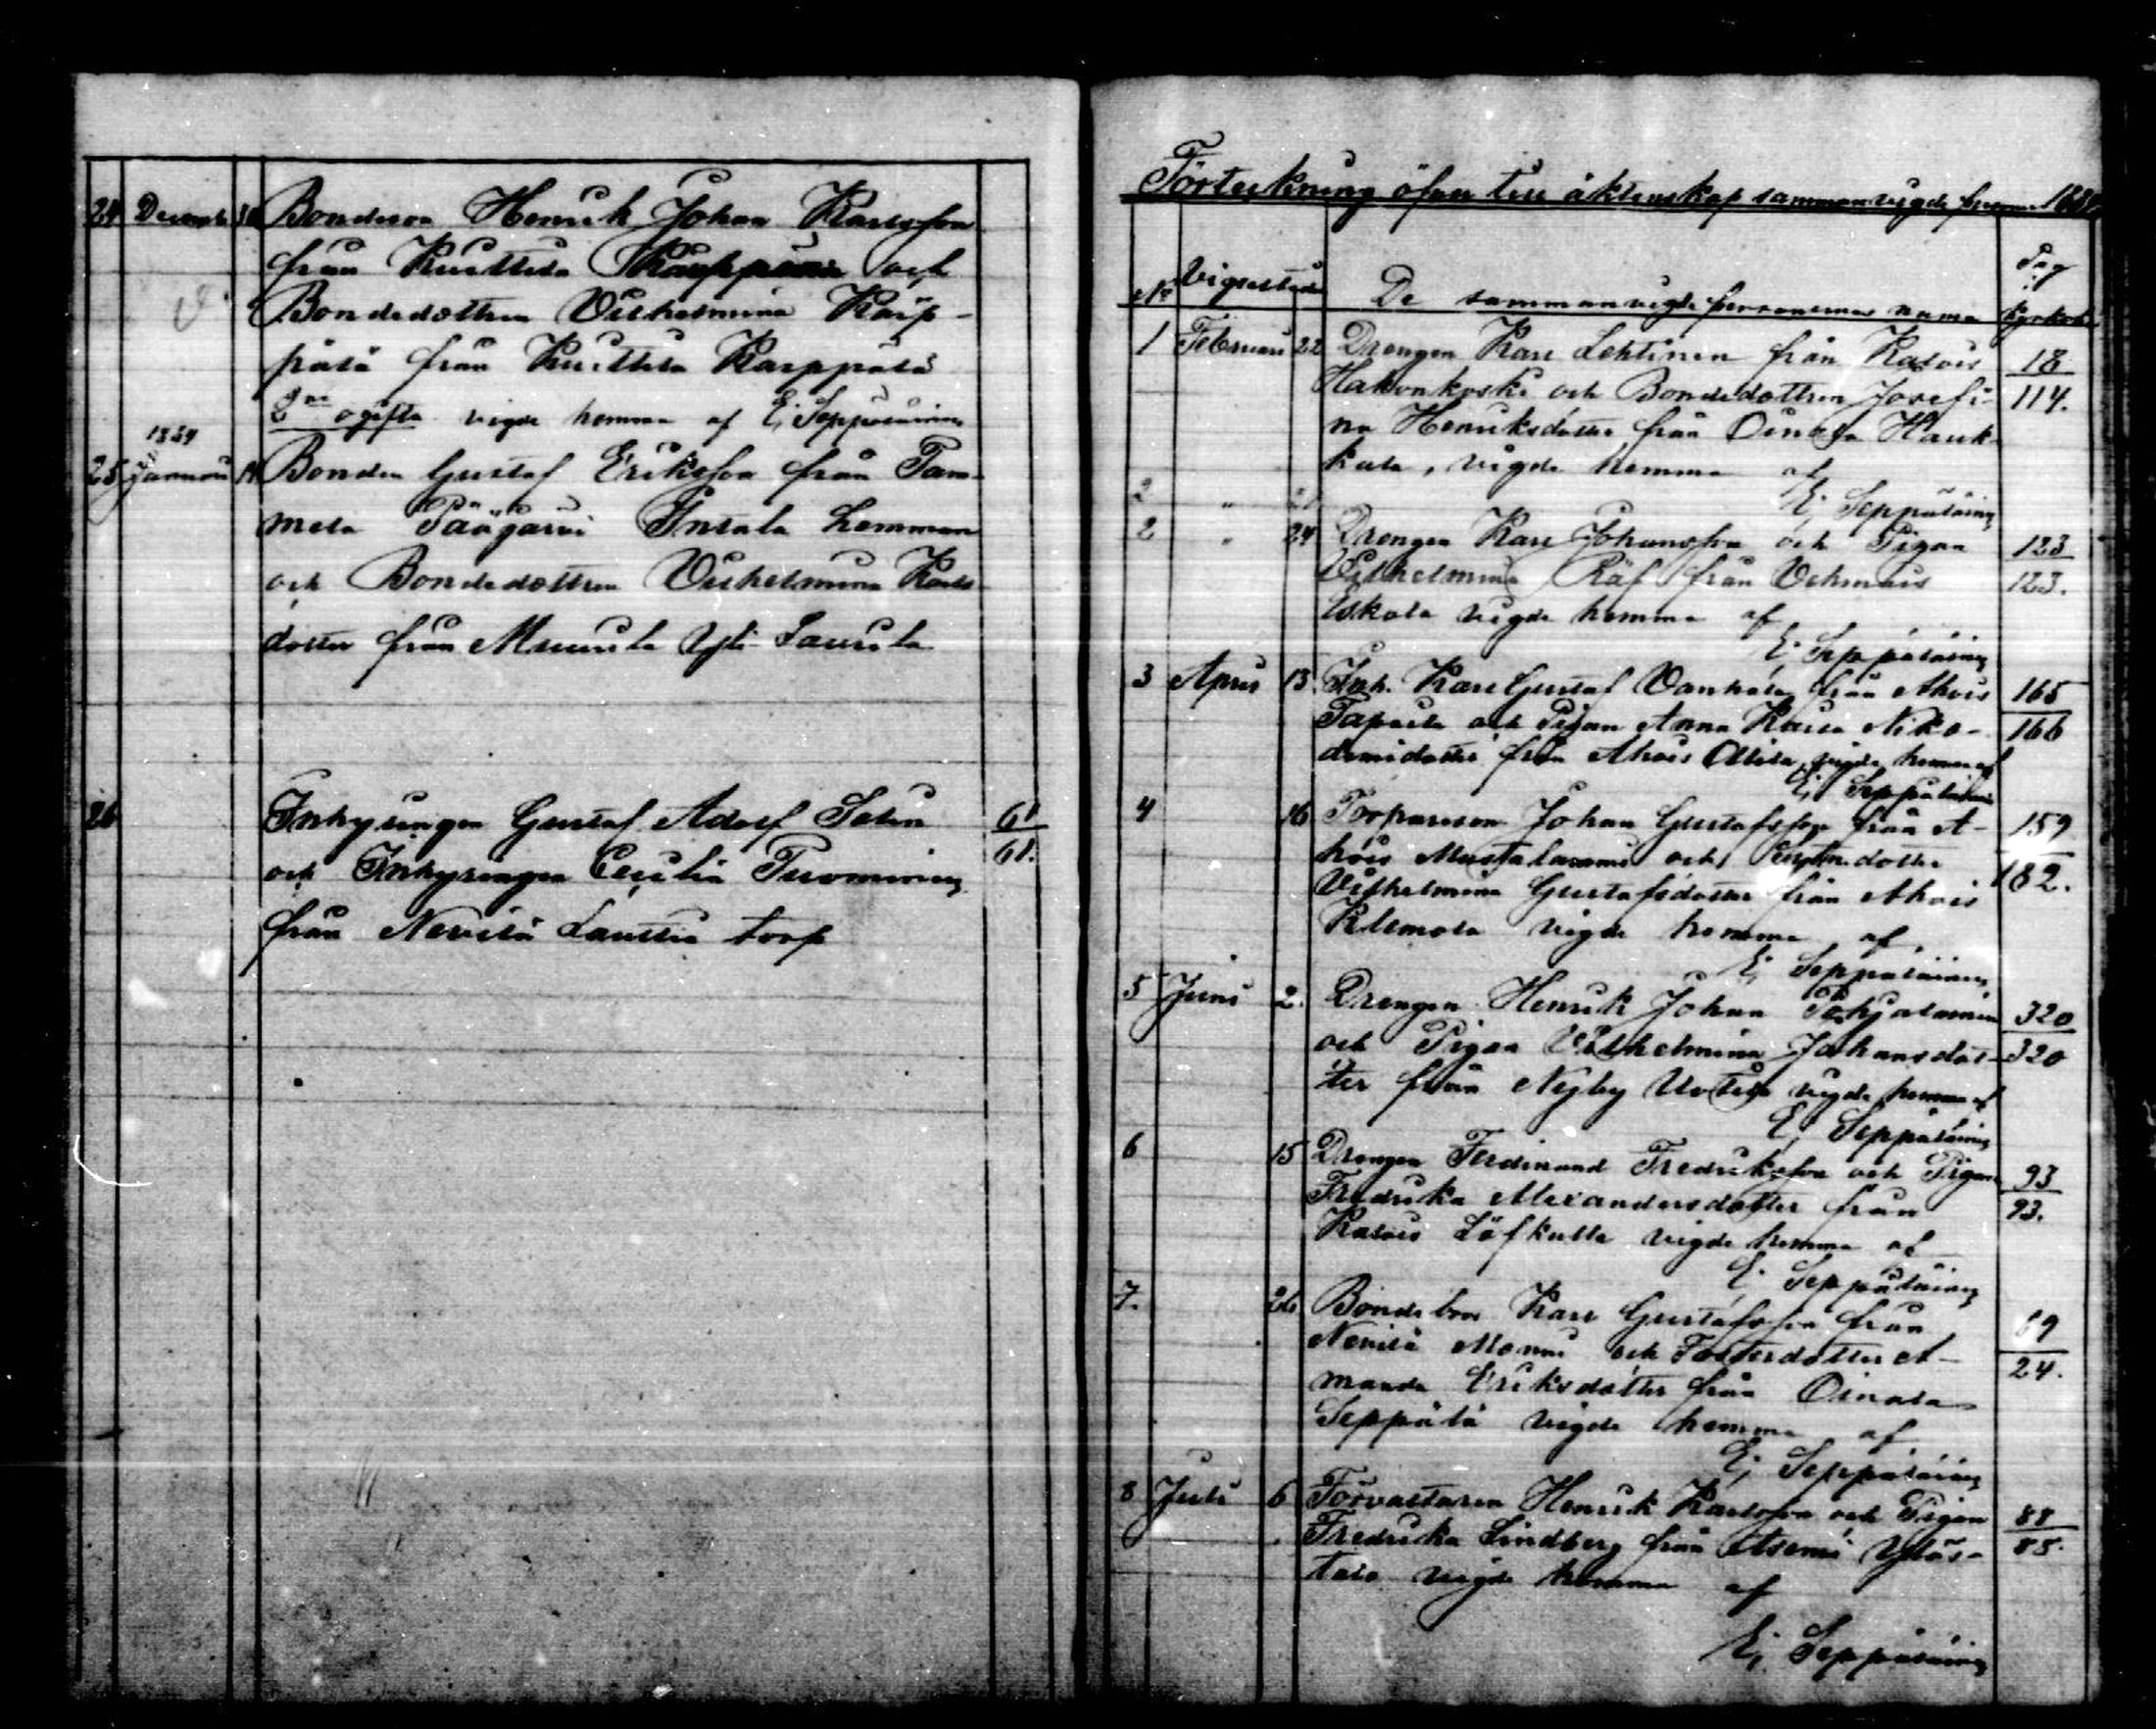 24 December 30 Bondeson Henrik Johan Karlsson
från Kuuttila och
Bondedottren Vilhelmina Karp-
pälä från Kuuttila Karppälä
2ne ogifta vigde hemma af E. Seppäläinen
1884
25 Januari 14 Bonden Gustaf Eriksson från Tam-
mela Pääjärvi Intala hemman
och Bondedottren Vilhelmina Karls
dotter från Muurila Yli-Saurila
26 Inhysingen Gustaf Adolf Salin 61
och Inhysingen Cecilia Tuominen 61.
från Nevilä Lauttia torp
Förteckning öfver till äktenskap sammanvigde personer 1884
No Vigseltid De sammanvigde personernas namn Pag i Kyrkob.
1 Februari 22 Drengen Karl Lehtinen från Kalois 18
Hakonkoski och Bondedottren Josefi- 114.
na Henriksdotter från Oinala Hauk-
kala, vigde hemma af
E. Seppäläinen
2 " 21
2 " 24 Drengen Karl Johansson och Pigan 123
Vilhelmina Räf från Ochmais 123.
Eskola vigde hemma af
E. Seppäläinen
3 April 13 Inh. Karl Gustaf Vanhala från Ahois 165
Tapaila och Pigan Anna Kaisa Niko- 166
demidotter från Ahois Alila vigde hemma af
E. Seppäläinen
4 16 Torpareson Johan Gustafsson från A- 159
hois Mustalammi och dotter 182.
Vilhelmina Gustafsdotter från Ahois
Klemola vigde hemma af
E. Seppäläinen
5 Juni 2. Drengen Henrik Johan Pohjalainen 320
och Pigan Vilhelmina Johansdot- 320
ter från Nyby Uotila vigde hemma af
E. Seppäläinen
6 15 Drengen Ferdinand Fredriksson och Pigan 93
Fredrika Alexandersdotter från 93.
Kalois Löfkulla vigde hemma af
E. Seppäläinen
7. 26 Bondebror Karl Gustafsson från 69
Nevilä Monni och Fosterdotter A- 24.
manda Eriksdotter från Oinala
Seppälä vigde hemma af
E. Seppäläinen
8 Juli 6 Förvaltaren Henrik Karlsson och Pigan 88
Fredrika Lindberg från Asemi Ylös- 88.
talo vigde hemma af
E. Seppäläinen